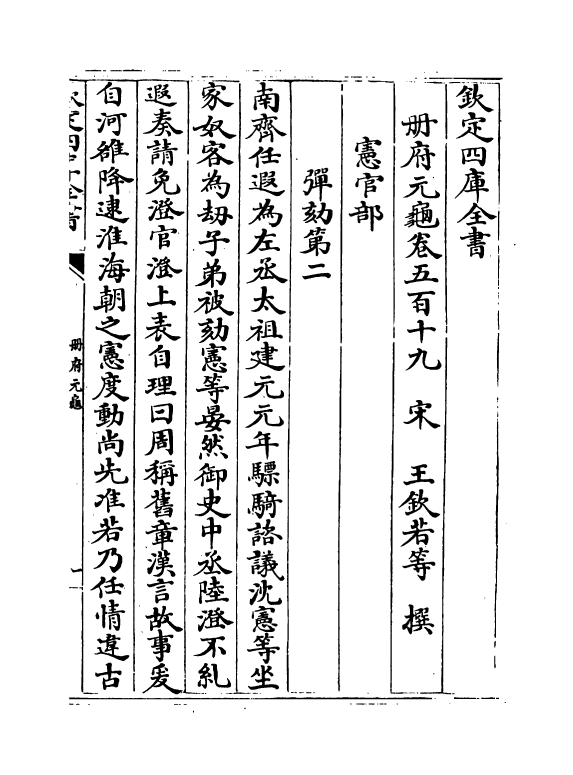 欽定四庫全書
册府元龜卷五百十九　宋　王欽若等　撰
憲官部
彈劾第二
南齊任遐為左丞太祖建元元年驃騎諮議沈憲等坐
家奴客為劫子弟被劾憲等晏然御史中丞陸澄不糺
遐奏請免澄官澄上表自理曰周稱舊章漢言故事爰
自河雒降逮淮海朝之憲度動尚先准若乃任情違古
册府元龜
一